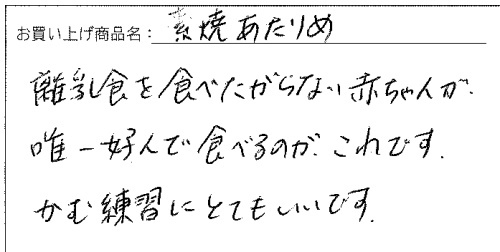 お買い上げ商品名：素焼あたりめ
離乳食を食べたがらない赤ちゃんが、
唯一好んで食べるのが、これです。
かむ練習にとてもいいです。